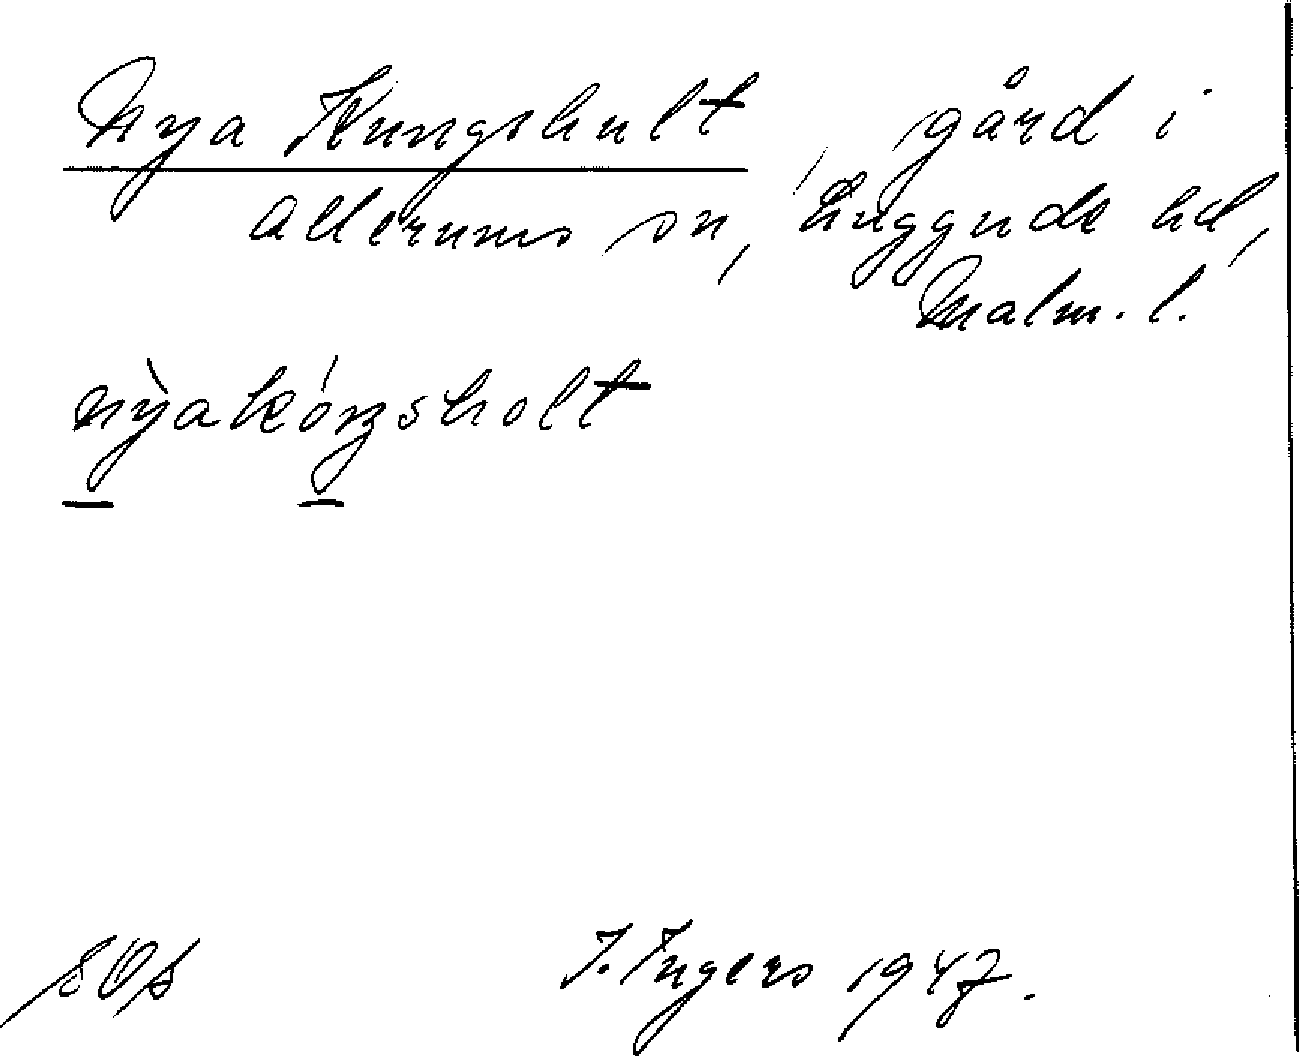 Nya Kungshult, gård i
Allerums sn, Luggude hd,
Malm. l.
nỳakóŋsholt
SOS
I. Ingers 1947.